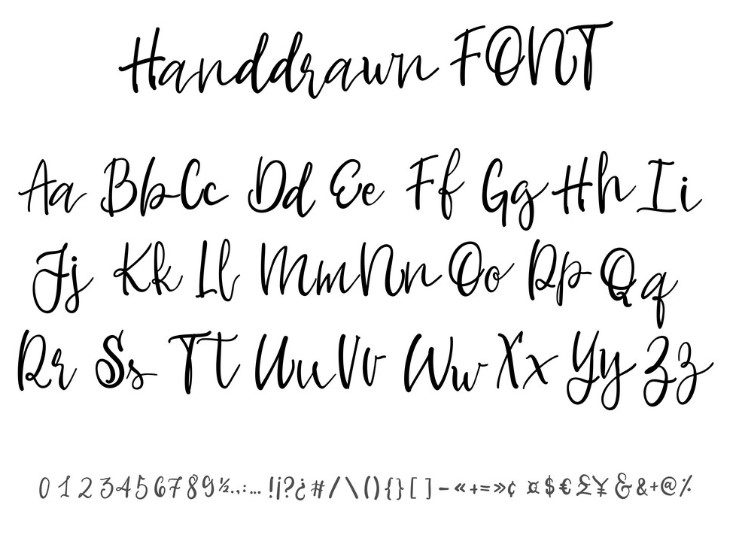 Handdrawn FONT
Aa Bb Cc Dd Ee Ff Gg Hh Ii
Jj Kk Ll Mm Nn Oo Pp Qq
Rr Ss Tt Uu Vv Ww Xx Yy Zz
0 1 2 3 4 5 6 7 8 9 ½ . , : … ! ¡ ? ¿ # / \ ( ) { } [ ] - « + = » ¢ ¤ $ € £ ¥ & & + @ %